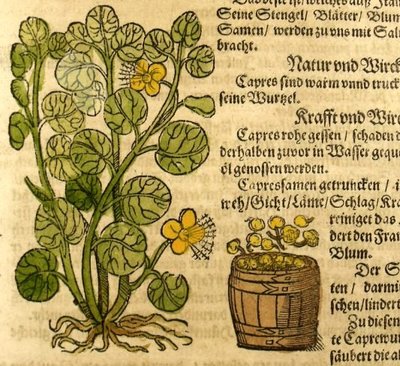 Seine Stengel / Blätter / Blum
Samen / werden zu uns mit Saltz
bracht.
Natur vnd Wirck
Capres sind warm vnnd truck
seine Wurzel.
Krafft vnd Wir
Capres rohe gessen / schaden d
derhalben zuvor in Wasser geque
öl genossen werden.
Capressamen getruncken / i
weh / Gicht / Läme / Schlag / Kra
reiniget das
dert den Fra
Blum.
Der S
ten / darmi
schen / lindert
Zu diesen
te Caprewur
säubert die al